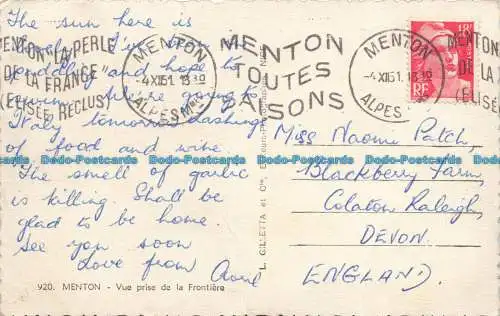 The sun here is
and hope to
We're going to
Italy tomorrow. Lashings
of food and wine.
The smell of garlic
is killing. Shall be
glad to be home.
See you soon
Love from
920. MENTON - Vue prise de la Frontière
L. GILLETTA et Cie.
MENTON "LA PERLE
DE LA FRANCE"
(ELISÉE RECLUS)
MENTON
-4 XII51. 13 30
ALPES Mmes
MENTON
TOUTES
SAISONS
MENTON
-4 XII51. 13 30
ALPES
18F
RF
MEN
DE LA
(ELISEE
Miss Naomi Patch,
Blackberry Farm,
Colaton Raleigh,
DEVON.
ENGLAND.
Dodo-Postcards Dodo-Postcards Dodo-Postcards Dodo-Postcards